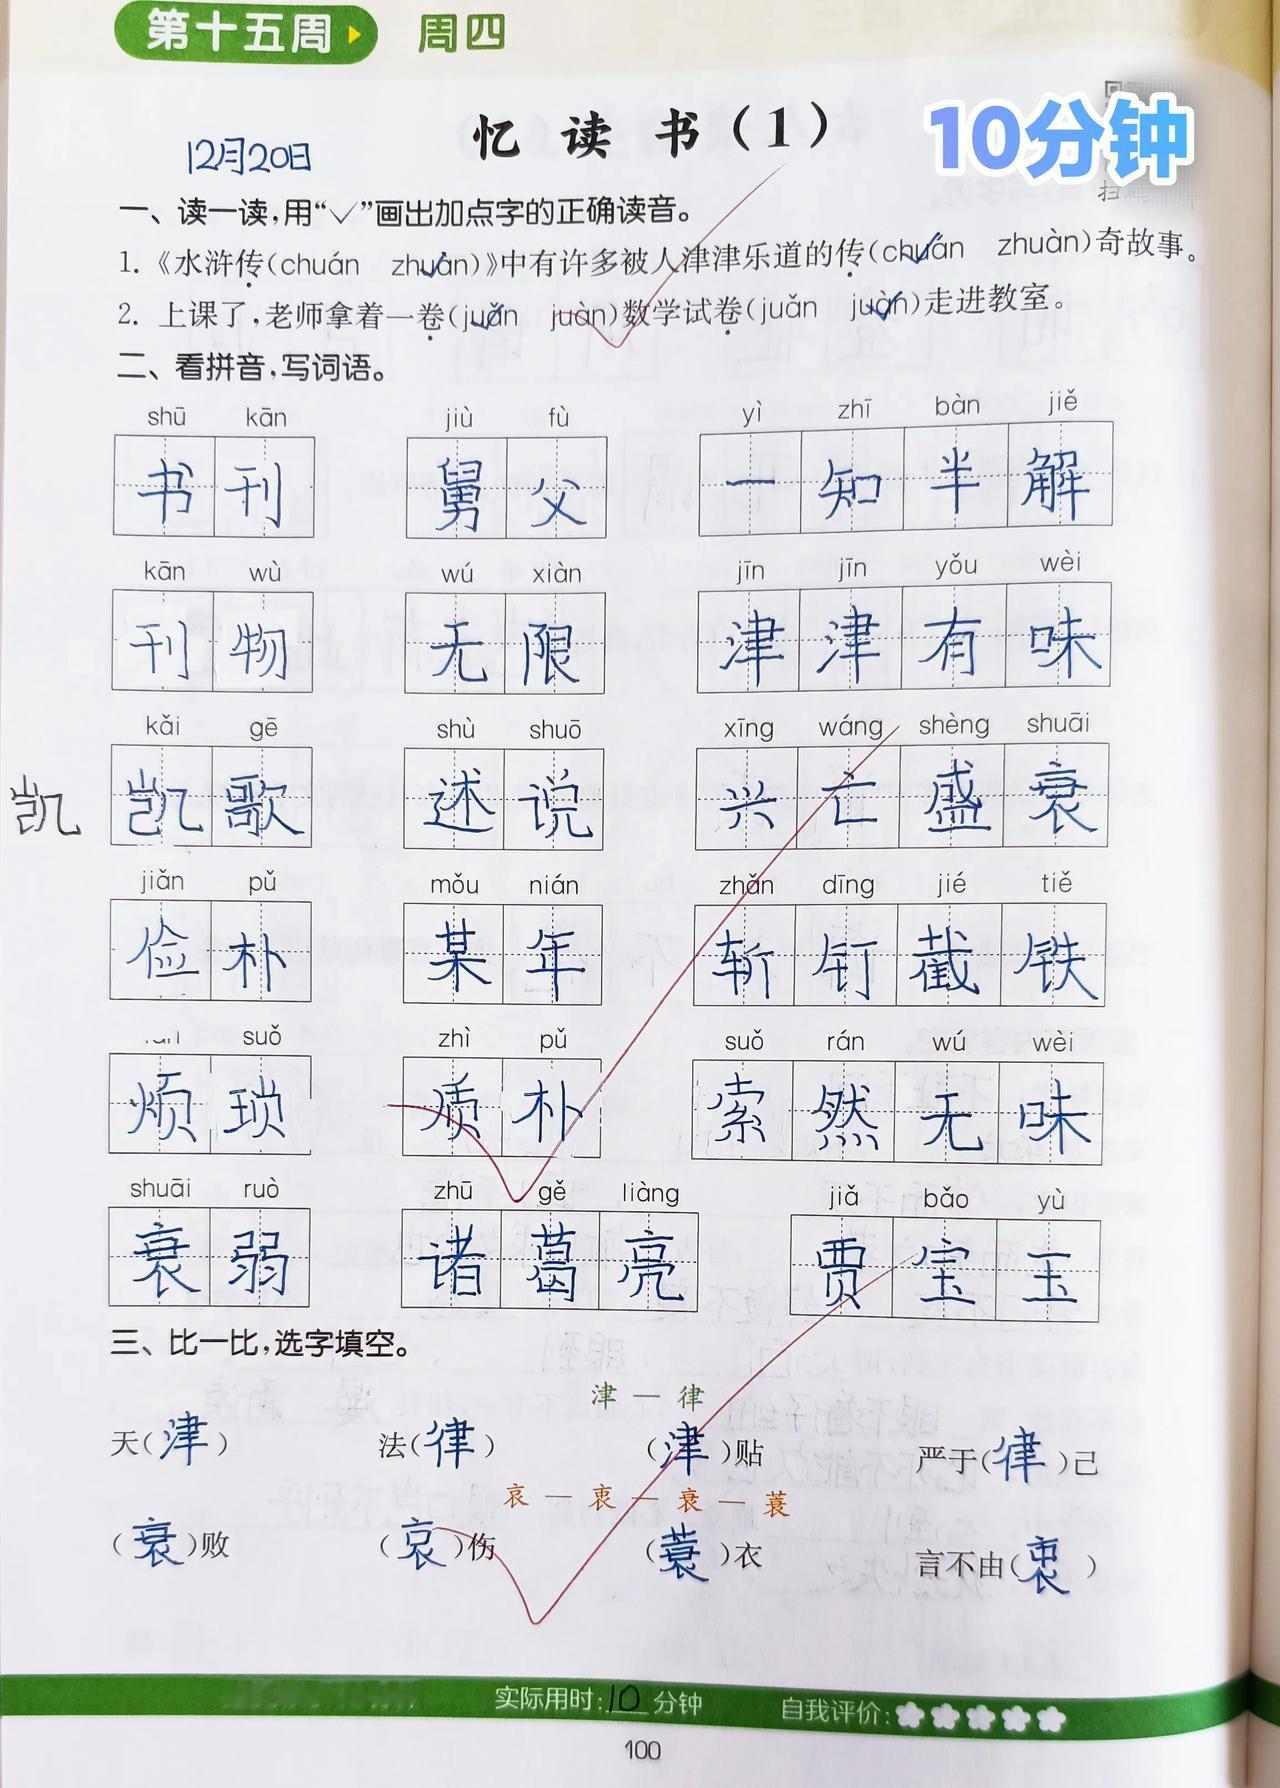 第十五周 周四
10分钟
忆读书(1)
扫
12月20日
一、读一读,用“✓”画出加点字的正确读音。
1.《水浒传(chuán zhuàn)》中有许多被人津津乐道的传(chuán zhuàn)奇故事。
2. 上课了,老师拿着一卷(juǎn juàn)数学试卷(juǎn juàn)走进教室。
二、看拼音,写词语。
shū kān jiù fù yì zhī bàn jiě
书刊 舅父 一知半解
kān wù wú xiàn jīn jīn yǒu wèi
刊物 无限 津津有味
kǎi gē shù shuō xīng wáng shèng shuāi
凯 凯歌 述说 兴亡盛衰
jiǎn pǔ mǒu nián zhǎn dīng jié tiě
俭朴 某年 斩钉截铁
suǒ zhì pǔ suǒ rán wú wèi
烦琐 质朴 索然无味
shuāi ruò zhū gě liàng jiǎ bǎo yù
衰弱 诸葛亮 贾宝玉
三、比一比,选字填空。
津—律
天(津) 法(律) (津)贴 严于(律)己
哀—衷—衰—蓑
(衰)败 (哀)伤 (蓑)衣 言不由(衷)
实际用时:10分钟 自我评价:
100